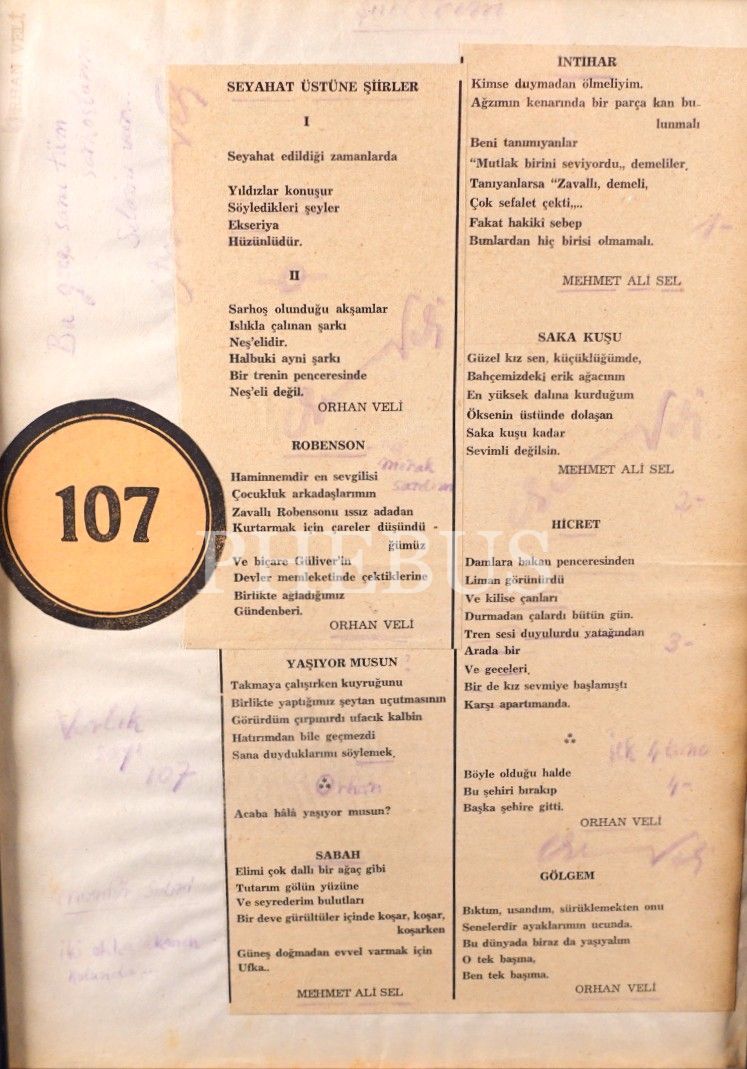 SEYAHAT ÜSTÜNE ŞİİRLER
I
Seyahat edildiği zamanlarda
Yıldızlar konuşur
Söyledikleri şeyler
Ekseriya
Hüzünlüdür.
II
Sarhoş olunduğu akşamlar
Islıkla çalınan şarkı
Neş'elidir.
Halbuki ayni şarkı
Bir trenin penceresinde
Neş'eli değil.
ORHAN VELİ
ROBENSON
Haminnemdir en sevgilisi
Çocukluk arkadaşlarımın
Zavallı Robensonu ıssız adadan
Kurtarmak için çareler düşündü -
ğümüz
Ve biçare Güliver'in
Devler memleketinde çektiklerine
Birlikte ağladığımız
Gündenberi.
ORHAN VELİ
YAŞIYOR MUSUN ?
Takmaya çalışırken kuyruğunu
Birlikte yaptığımız şeytan uçutmasının
Görürdüm çırpınırdı ufacık kalbin
Hatırımdan bile geçmezdi
Sana duyduklarımı söylemek.
Orhan
Acaba hâlâ yaşıyor musun?
SABAH
Elimi çok dallı bir ağaç gibi
Tutarım gölün yüzüne
Ve seyrederim bulutları
Bir deve gürültüler içinde koşar, koşar,
koşarken
Güneş doğmadan evvel varmak için
Ufka..
MEHMET ALİ SEL
İNTİHAR
Kimse duymadan ölmeliyim.
Ağzımın kenarında bir parça kan bu-
lunmalı
Beni tanımıyanlar
“Mutlak birini seviyordu„ demeliler.
Tanıyanlarsa “Zavallı, demeli,
Çok sefalet çekti„..
Fakat hakiki sebep
Bunlardan hiç birisi olmamalı.
1-
MEHMET ALİ SEL
SAKA KUŞU
Güzel kız sen, küçüklüğümde,
Bahçemizdeki erik ağacının
En yüksek dalına kurduğum
Öksenin üstünde dolaşan
Saka kuşu kadar
Sevimli değilsin.
MEHMET ALİ SEL
2-
HİCRET
Damlara bakan penceresinden
Liman görünürdü
Ve kilise çanları
Durmadan çalardı bütün gün.
Tren sesi duyulurdu yatağından
Arada bir
3-
Ve geceleri.
Bir de kız sevmiye başlamıştı
Karşı apartımanda.
Böyle olduğu halde
Bu şehiri bırakıp
4-
Başka şehire gitti.
ORHAN VELİ
GÖLGEM
Bıktım, usandım, sürüklemekten onu
Senelerdir ayaklarımın ucunda.
Bu dünyada biraz da yaşıyalım
O tek başına,
Ben tek başıma.
ORHAN VELİ
107
Varlık
107
PHEBUS